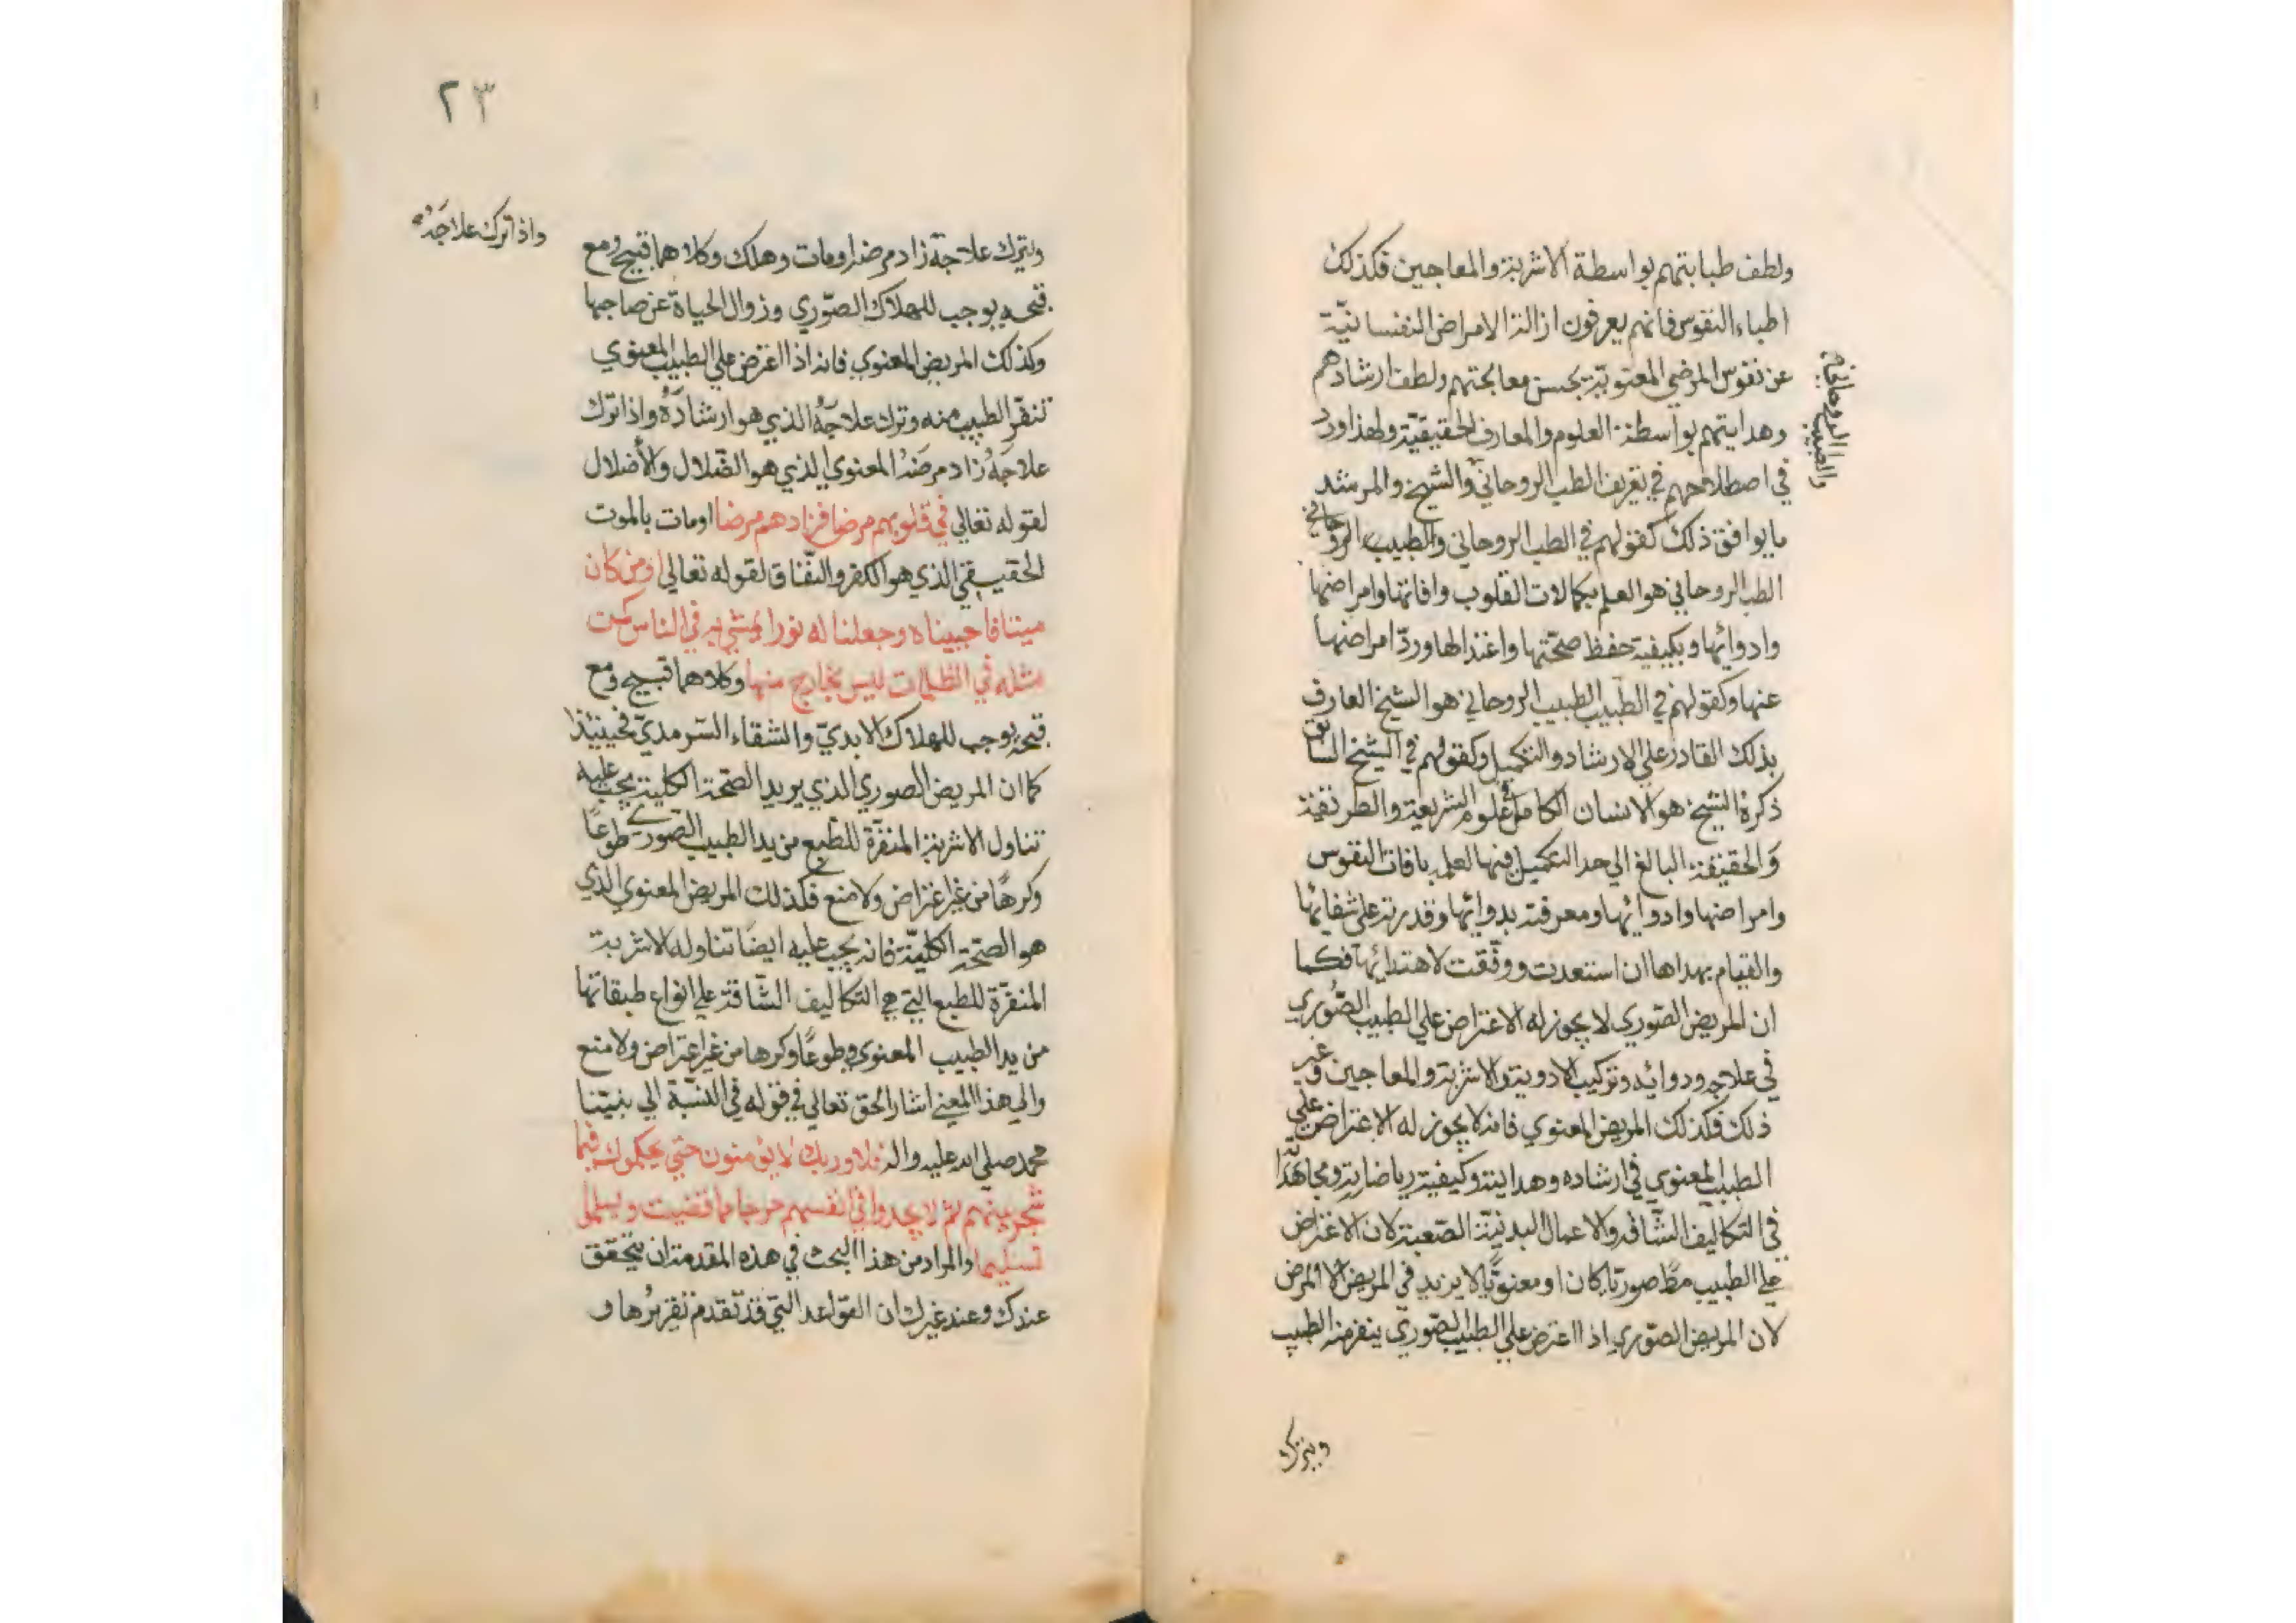 ولطف طبابتهم بواسطة الاشربة والمعاجين فكذلك
اطباء النفوس فانهم يعرفون ازالة الامراض النفسانية
عن نفوس المرضي المعنوية بحسن معالجتهم ولطف ارشادهم
وهدايتهم بواسطة العلوم والمعارف الحقيقية ولهذا ورد
في اصطلاحهم في تعريف الطب الروحاني والشيخ والمرشد
والطبيب الروحاني
ما يوافق ذلك كقولهم في الطب الروحاني والطبيب الروحاني
الطب الروحاني هو العلم بكمالات القلوب وافاتها وامراضها
وادوائها وبكيفية حفظ صحتها واعتدالها وردّ امراضها
عنها وكقولهم في الطبيب الطبيب الروحاني هو الشيخ العارف
بذلك القادر علي الارشاد والتكميل وكقولهم في الشيخ السابق
ذكره الشيخ هو الانسان الكامل في علوم الشريعة والطريقة
والحقيقة البالغ الي حد التكميل فيها لعلمه بافات النفوس
وامراضها وادوائها ومعرفته بدوائها وقدرته علي شفائها
والقيام بهداها ان استعدت ووفّقت لاهتدائها فكما
ان المريض الصّوري لا يجوز له الاعتراض علي الطبيب الصّوري
في علاجه ودوائه وتركيب الادوية والاشربة والمعاجين وغير
ذلك فكذلك المريض المعنوي فانه لا يجوز له الاعتراض علي
الطبيب المعنوي في ارشاده وهدايته وكيفية رياضاته ومجاهداته
في التكاليف الشّاقه والاعمال البدنيّة الصّعبة لان الاعتراض
علي الطبيب مطّ صوريّا كان او معنويّا لا يزيد في المريض الا المرض
لان المريض الصّوري اذا اعترض علي الطبيب الصّوري ينفر منه الطبيب
ويترك
٢٣
ويترك علاجه زاد مرضه او مات وهلك وكلاهما قبيح ومع
واذا ترك علاجَهُ
قبحه يوجب للهلاك الصّوري وزوال الحياة عن صاحبها
وكذلك المريض المعنوي فانه اذا اعترض علي الطبيب المعنوي
تنفّر الطبيب منه وترك علاجَهُ الذي هو ارشادَهُ واذا ترك
علاجَهُ زاد مرضَهُ المعنوي الذي هو الضّلال والأضلال
لقوله تعالي في قلوبهم مرضا فزادهم مرضا او مات بالموت
الحقيقي الذي هو الكفر والنّفاق لقوله تعالي اومن كان
ميتا فاحييناه وجعلنا له نورا يمشي به في الناس كمن
مثله في الظلمات ليس بخارج منها وكلاهما قبيح ومع
قبحه يوجب للهلاك الابديّ والشقاء السّرمديّ فحينيئذ
كما ان المريض الصوري الذي يريد الصّحة الكلية يجب عليه
تناول الاشربة المنفّرة للطّبع من يد الطبيب الصّوري طوعًا
وكرهًا من غير اعتراض ولا منع فكذلك المريض المعنوي الذي
هو الصّحة الكليّة فانه يجب عليه ايضا تناوله الاشربة
المنفّرة للطبع التي هي التكاليف الشّاقة علي انواع طبقاتها
من يد الطبيب المعنوي وطوعًا وكرها من غير اعتراض ولا منع
والي هذا المعني اشار الحق تعالي في قوله في النّسبة الي نبيّنا
محمد صلي الله عليه واله فلا وربك لا يؤمنون حتي يحكموك فيما
شجر بينهم ثم لا يجدوا في انفسهم حرجا مما قضيت ويسلموا
تسليما والمراد من هذا البحث في هذه المقدمة ان يتحقق
عندك وعند غيرك ان القواعد التي قد تقدم تقريرُها و